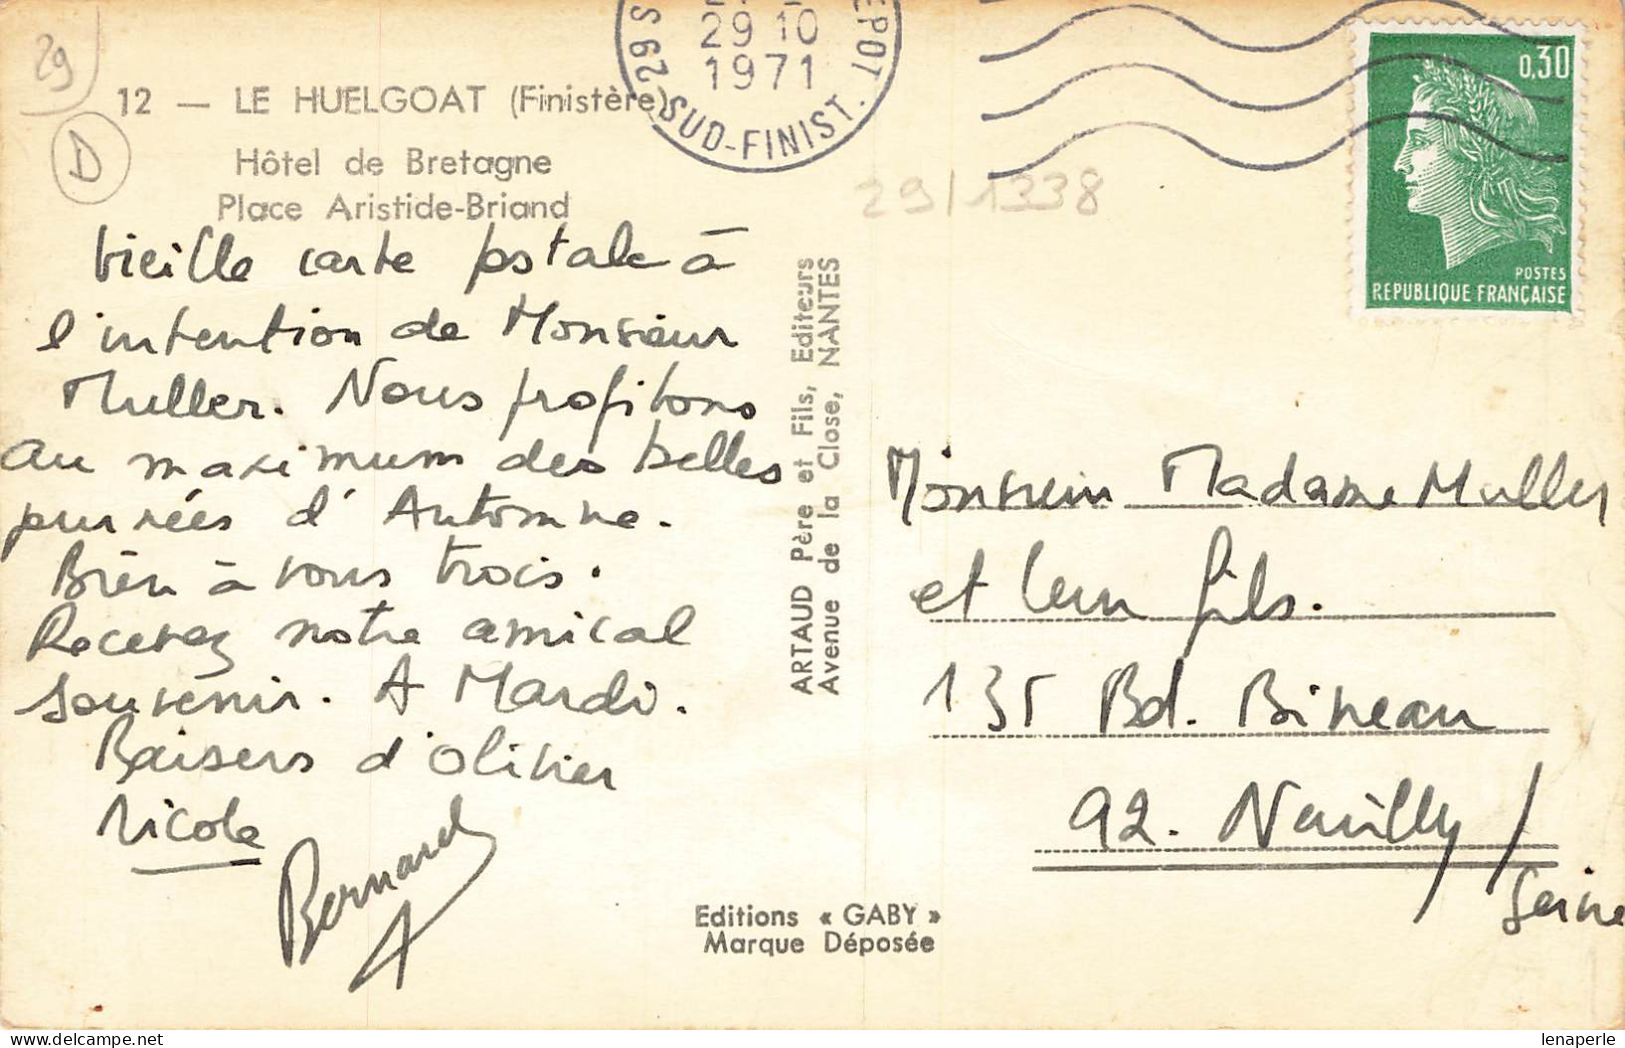 29
12 — LE HUELGOAT (Finistère)
D
Hôtel de Bretagne
Place Aristide-Briand
Vieille carte postale à
l'intention de Monsieur
Muller. Nous profitons
au maximum des belles
journées d'Automne.
Bien à vous trois.
Recevez notre amical
souvenir. A Mardi.
Baisers d'Olivier
Nicole
Bernard
29 10
1971
SUD-FINIST.
29/1338
0,30
POSTES
REPUBLIQUE FRANÇAISE
ARTAUD Père et Fils, Editeurs
Avenue de la Close, NANTES
Monsieur Madame Muller
et leur fils.
135 Bd. Bineau
92. Neuilly/
Seine
Editions « GABY »
Marque Déposée
delcampe.net
lenaperle